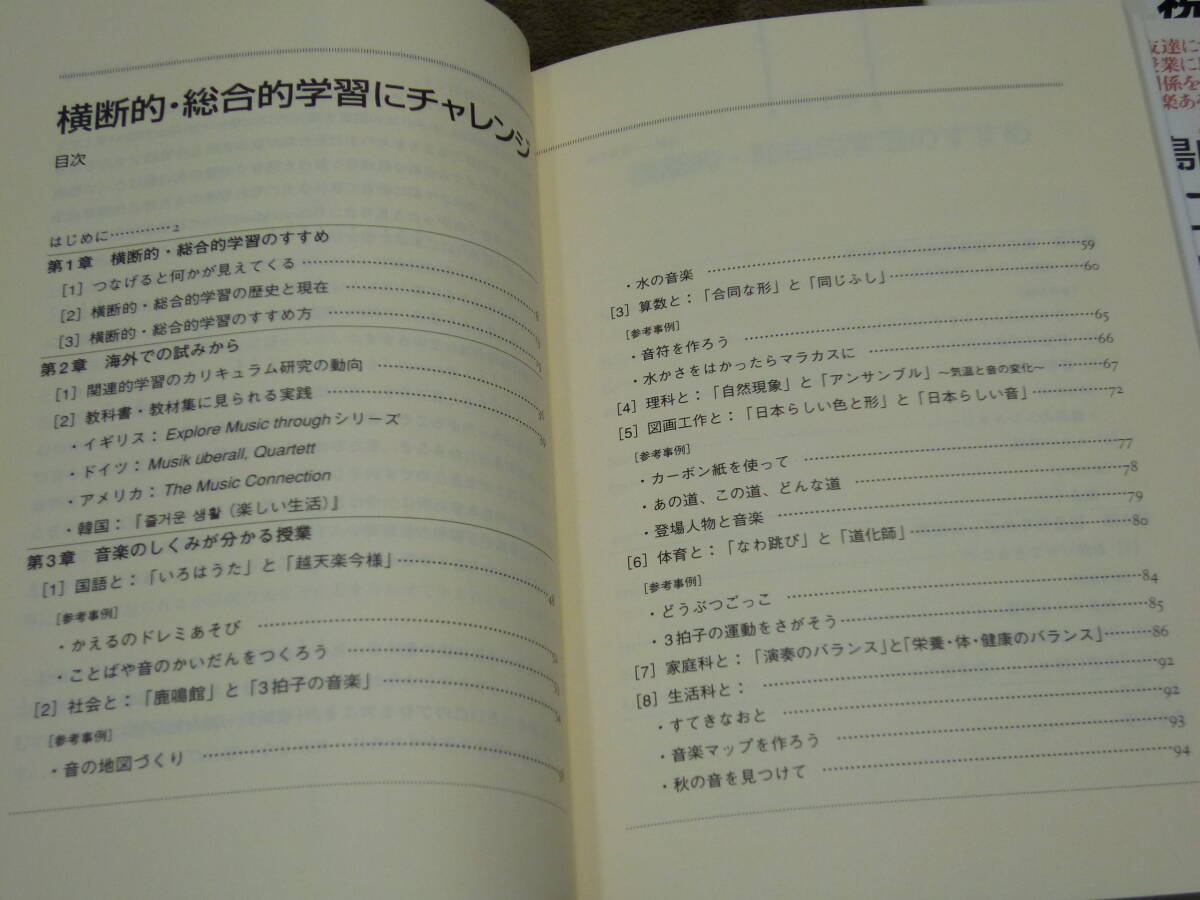 横断的・総合的学習にチャレンジ
目次
はじめに…………2
第1章 横断的・総合的学習のすすめ
[1] つなげると何かが見えてくる
[2] 横断的・総合的学習の歴史と現在 ……… 8
[3] 横断的・総合的学習のすすめ方
第2章 海外での試みから
[1] 関連的学習のカリキュラム研究の動向
[2] 教科書・教材集に見られる実践
・イギリス：Explore Music throughシリーズ
・ドイツ：Musik uberall, Quartett
・アメリカ：The Music Connection
・韓国：『즐거운 생활（楽しい生活）』
第3章 音楽のしくみが分かる授業
[1] 国語と：「いろはうた」と「越天楽今様」……… 48
[参考事例]
・かえるのドレミあそび ……… 52
・ことばや音のかいだんをつくろう ……… 53
[2] 社会と：「鹿鳴館」と「3拍子の音楽」……… 54
[参考事例]
・音の地図づくり ……… 58
・水の音楽 ……… 59
[3] 算数と：「合同な形」と「同じふし」……… 60
[参考事例]
・音符を作ろう ……… 65
・水かさをはかったらマラカスに ……… 66
[4] 理科と：「自然現象」と「アンサンブル」～気温と音の変化～ ……… 67
[5] 図画工作と：「日本らしい色と形」と「日本らしい音」……… 72
[参考事例]
・カーボン紙を使って ……… 77
・あの道、この道、どんな道 ……… 78
・登場人物と音楽 ……… 79
[6] 体育と：「なわ跳び」と「道化師」……… 80
[参考事例]
・どうぶつごっこ ……… 84
・3拍子の運動をさがそう ……… 85
[7] 家庭科と：「演奏のバランス」と「栄養・体・健康のバランス」……… 86
[8] 生活科と： ……… 92
・すてきなおと ……… 92
・音楽マップを作ろう ……… 93
・秋の音を見つけて ……… 94
友達に
授業に
関係を